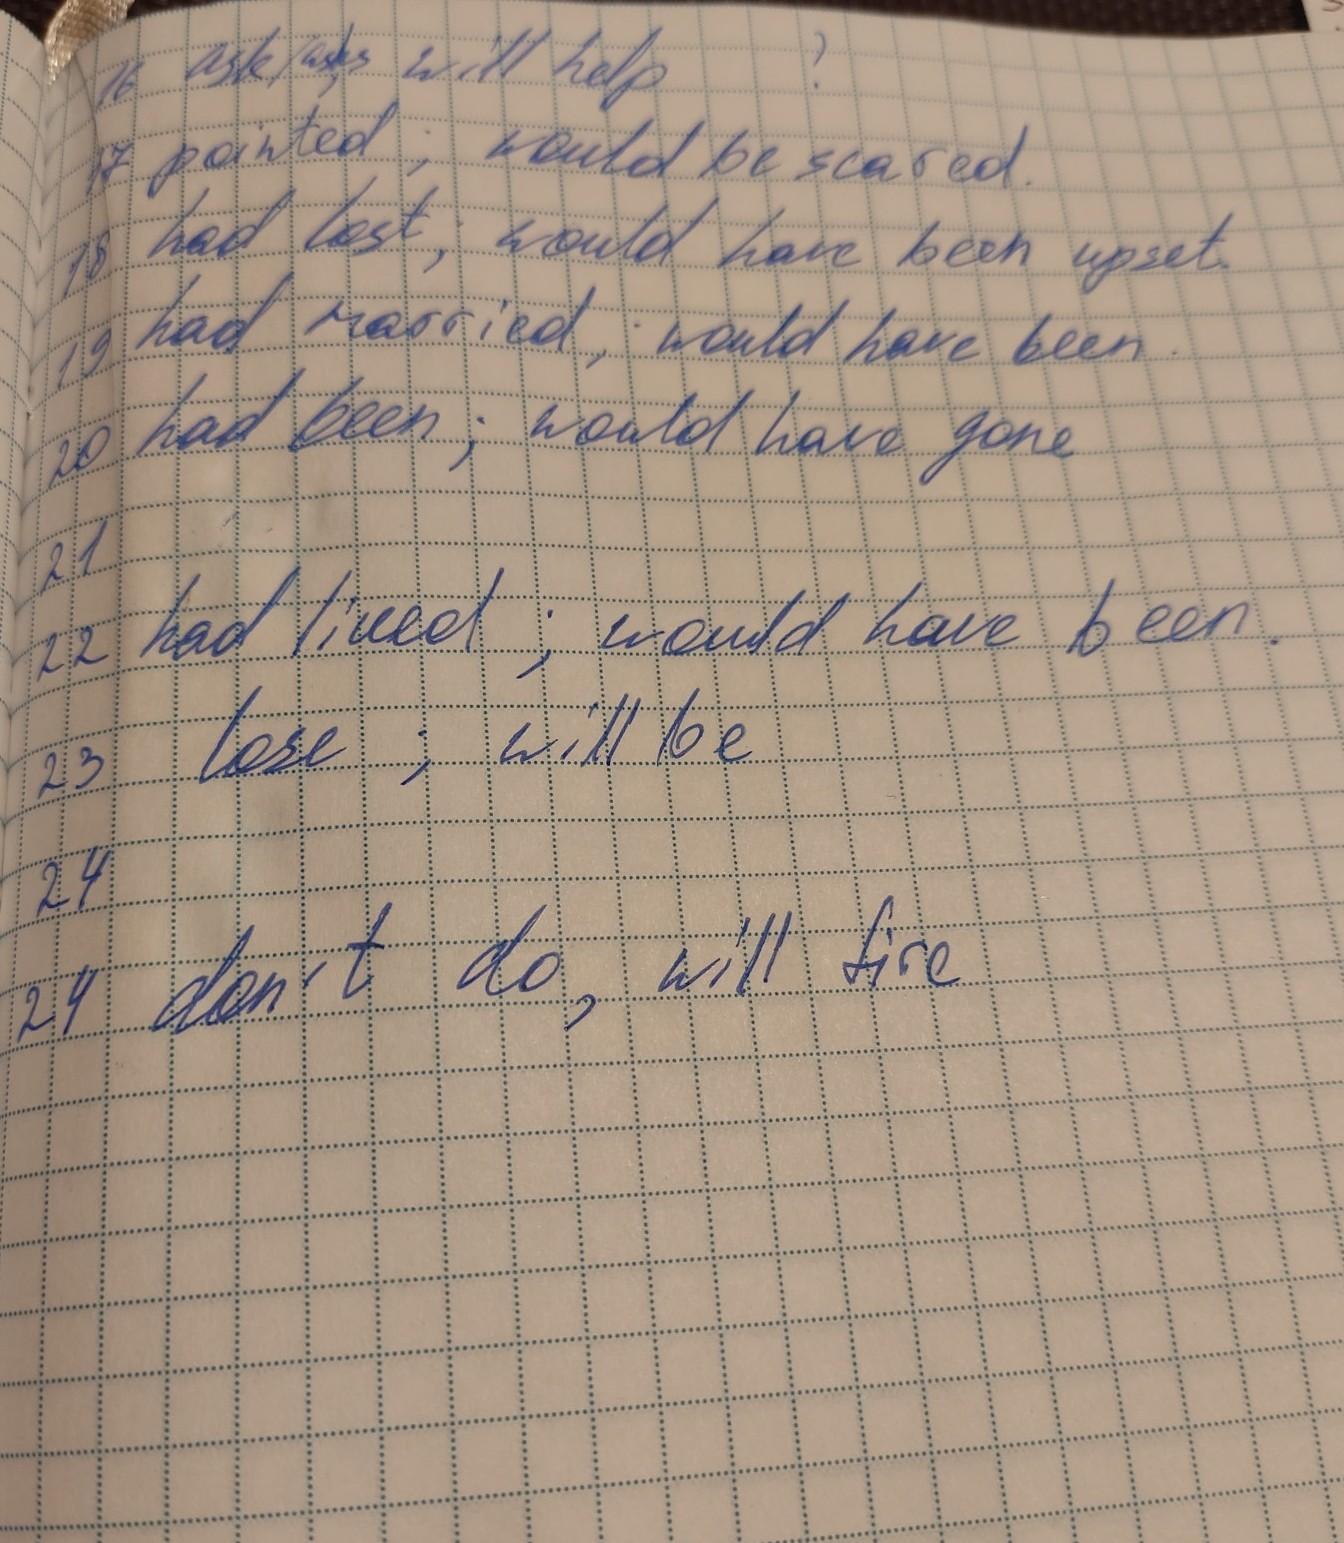 16 ask/asks will help ?
17 pointed ; would be scared.
18 had lost ; would have been upset.
19 had married ; would have been.
20 had been ; would have gone
21
22 had lived ; would have been.
23 lose ; will be
24
24 don't do, will fire